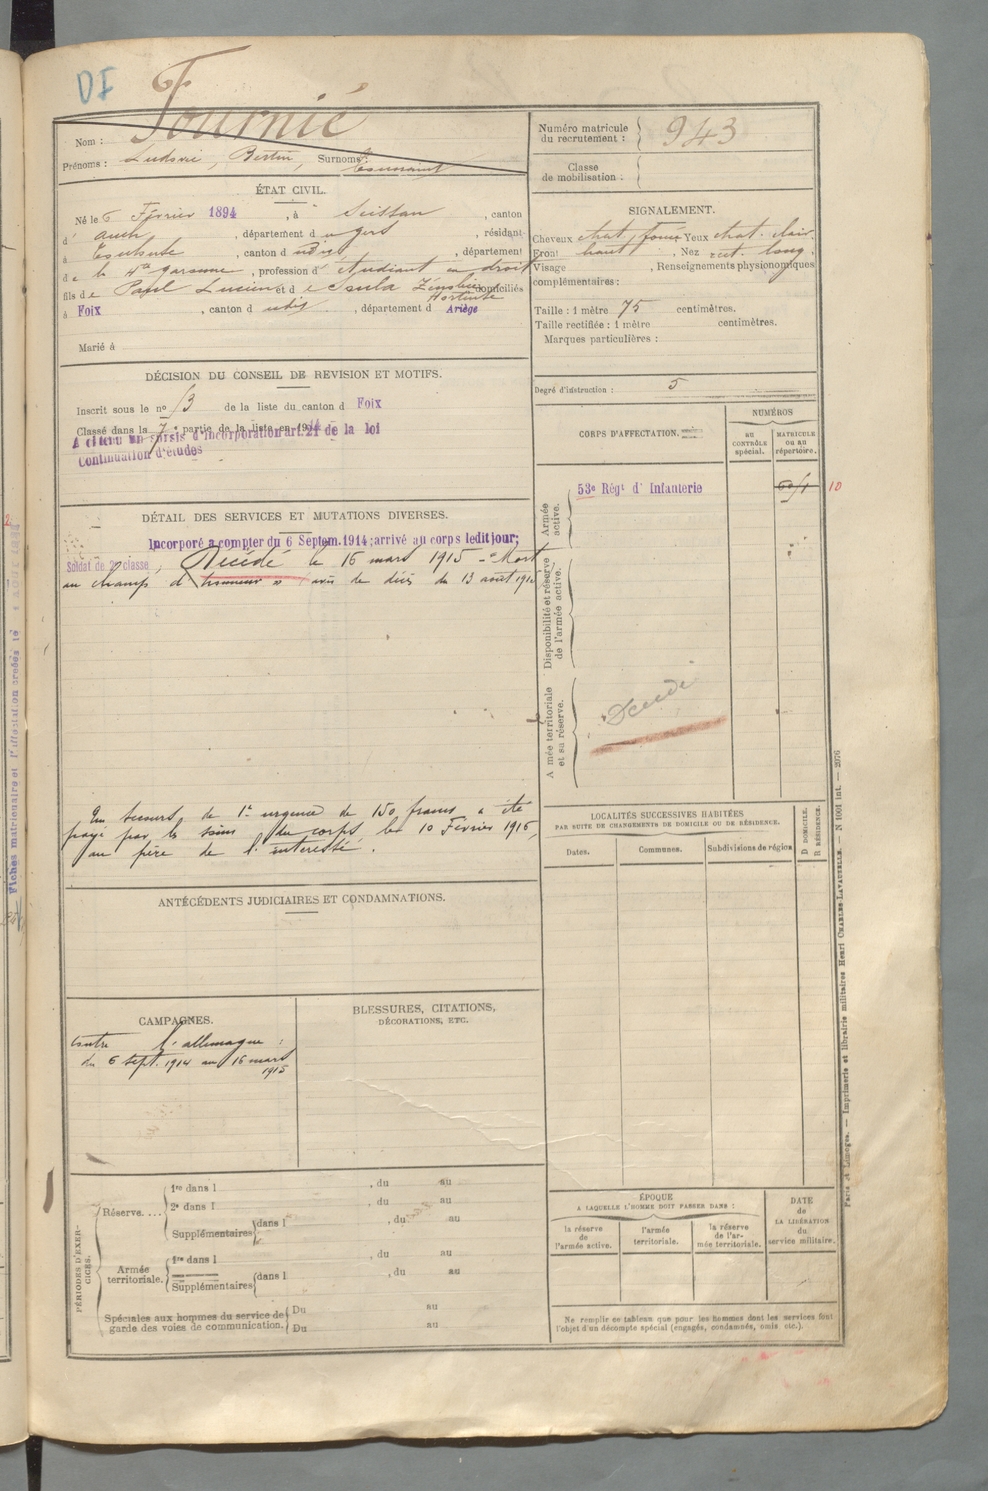 DF
Nom : Fournié
Prénoms : Ludovic, Bertin, Surnoms : Toussaint
Numéro matricule du recrutement : 943
Classe de mobilisation :
ÉTAT CIVIL.
Né le 6 Février 1894, à Seissan, canton
d' Auch, département du Gers, résidant
à Toulouse, canton d udit, département
de la Hte Garonne, profession d' étudiant en droit
fils de Paul Lucien et de Paula Hortense domiciliés
à Foix, canton d udit, département d Ariège
Marié à
SIGNALEMENT.
Cheveux chat. foncé Yeux chat. clair.
Front haut, Nez rect. long.
Visage , Renseignements physionomiques
complémentaires :
Taille : 1 mètre 75 centimètres.
Taille rectifiée : 1 mètre centimètres.
Marques particulières :
Degré d'instruction : 5
DÉCISION DU CONSEIL DE REVISION ET MOTIFS.
Inscrit sous le no 13 de la liste du canton d Foix
Classé dans la 7e partie de la liste en 1914
A obtenu un sursis d'incorporation art. 21 de la loi
Continuation d'études
CORPS D'AFFECTATION.
NUMÉROS
AU CONTRÔLE spécial.
MATRICULE ou au répertoire.
Armée active.
53e Régt d' Infanterie
10
Disponibilité et réserve de l'armée active.
Armée territoriale et sa réserve.
Décédé
DÉTAIL DES SERVICES ET MUTATIONS DIVERSES.
Incorporé à compter du 6 Septem. 1914; arrivé au corps ledit jour;
Soldat de 2e classe, Décédé le 16 mars 1915 - "Mort
au champ d'honneur" avis de décès du 13 août 1915
Un secours de 1re urgence de 150 francs a été
payé par les soins du corps le 10 Février 1916,
au père de l'intéressé.
LOCALITÉS SUCCESSIVES HABITÉES
PAR SUITE DE CHANGEMENTS DE DOMICILE OU DE RÉSIDENCE.
Dates.
Communes.
Subdivisions de région
D DOMICILE.
R RÉSIDENCE.
ANTÉCÉDENTS JUDICIAIRES ET CONDAMNATIONS.
CAMPAGNES.
Contre l'allemagne :
du 6 sept. 1914 au 16 mars
1915
BLESSURES, CITATIONS,
DÉCORATIONS, ETC.
PÉRIODES D'EXERCICES.
Réserve....
1re dans l , du au
2e dans l , du au
Supplémentaires dans l , du au
Armée territoriale.
1re dans l , du au
Supplémentaires dans l , du au
Spéciales aux hommes du service de
garde des voies de communication.
Du au
Du au
ÉPOQUE
A LAQUELLE L'HOMME DOIT PASSER DANS :
la réserve de l'armée active.
l'armée territoriale.
la réserve de l'armée territoriale.
DATE de LA LIBÉRATION du service militaire.
Ne remplir ce tableau que pour les hommes dont les services font
l'objet d'un décompte spécial (engagés, condamnés, omis etc.).
Paris et Limoges. — Imprimerie et librairie militaires Henri CHARLES-LAVAUZELLE. — N 1601 int. — 2076